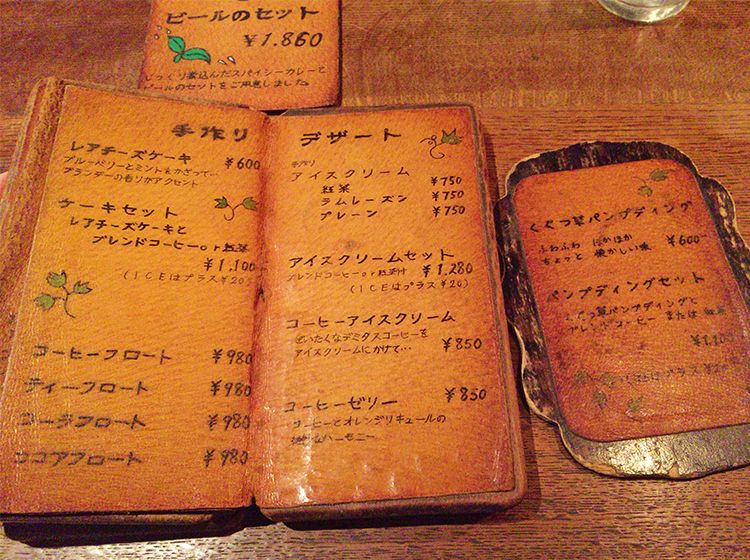 ビールのセット
¥1.860
じっくり煮込んだスパイシーカレーと
ビールのセットをご用意しました。
手作り デザート
レアチーズケーキ ¥600
ブルーベリーとミントをかざって…
ブランデーの香りがアクセント
ケーキセット
レアチーズケーキと
ブレンドコーヒーor紅茶
¥1.100
(ICEはプラス¥20)
コーヒーフロート ¥980
ティーフロート ¥980
コーラフロート ¥980
ココアフロート ¥980
手作り
アイスクリーム
紅茶 ¥750
ラムレーズン ¥750
プレーン ¥750
アイスクリームセット
ブレンドコーヒーor紅茶付 ¥1.280
(ICEはプラス¥20)
コーヒーアイスクリーム
ぜいたくなデミタスコーヒーを
アイスクリームにかけて… ¥850
コーヒーゼリー ¥850
コーヒーとオレンヂリキュールの
ハーモニー
くぐつ草パンプディング
ふわふわ ほかほか
ちょっと 懐かしい味 ¥600
パンプディングセット
くぐつ草パンプディングと
ブレンドコーヒー または 紅茶
¥1.100
プラス¥20